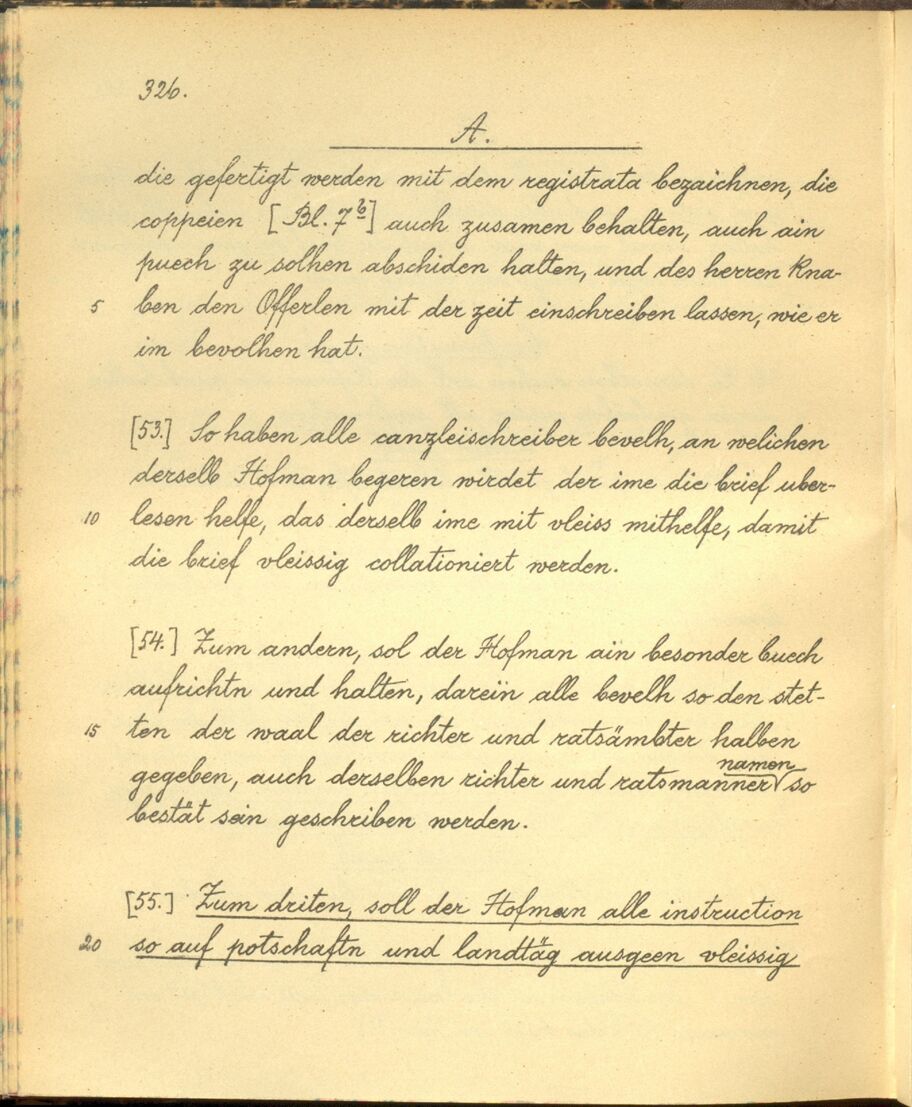 326.
A.
die gefertigt werden mit dem registrata bezaichnen, die
coppeien [Bl. 7b] auch zusamen behalten, auch ain
puech zu solhen abschiden halten, und des herren Kna-
5 ben den Offerlen mit der zeit einschreiben lassen, wie er
im bevolhen hat.
[53.] So haben alle canzleischreiber bevelh, an welichen
derselb Hofman begeren wirdet der ime die brief uber-
10 lesen helfe, das derselb ime mit vleiss mithelfe, damit
die brief vleissig collationiert werden.
[54.] Zum andern, sol der Hofman ain besonder buech
aufrichtn und halten, darein alle bevelh so den stet-
15 ten der waal der richter und ratsämbter halben
namen
gegeben, auch derselben richter und ratsmanner so
bestät sein geschriben werden.
[55.] Zum driten, soll der Hofman alle instruction
20 so auf potschaftn und landtäg ausgeen vleissig